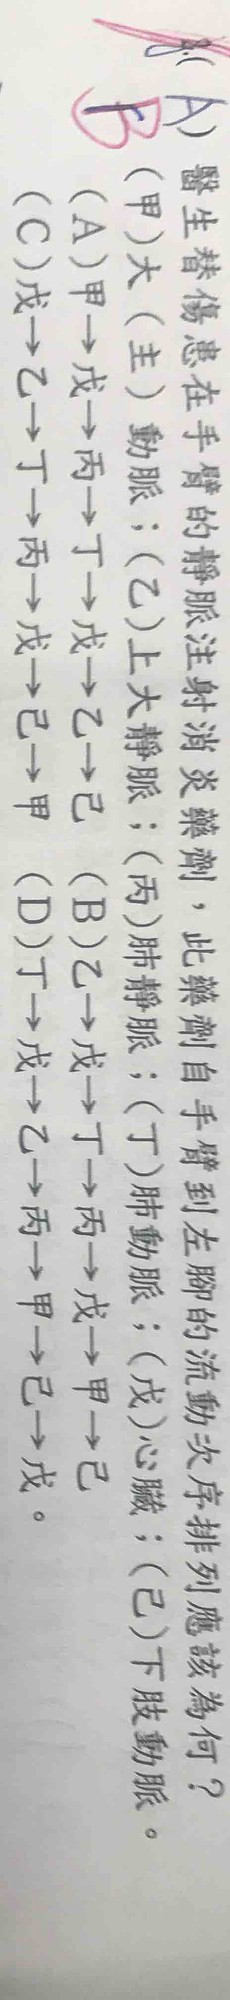 (A) 醫生替傷患在手臂的靜脈注射消炎藥劑，此藥劑自手臂到左腳的流動次序排列應該為何？
B (甲)大(主)動脈；(乙)上大靜脈；(丙)肺靜脈；(丁)肺動脈；(戊)心臟；(己)下肢動脈。
(A)甲→戊→丙→丁→戊→乙→己 (B)乙→戊→丁→丙→戊→甲→己
(C)戊→乙→丁→丙→戊→己→甲 (D)丁→戊→乙→丙→甲→己→戊。